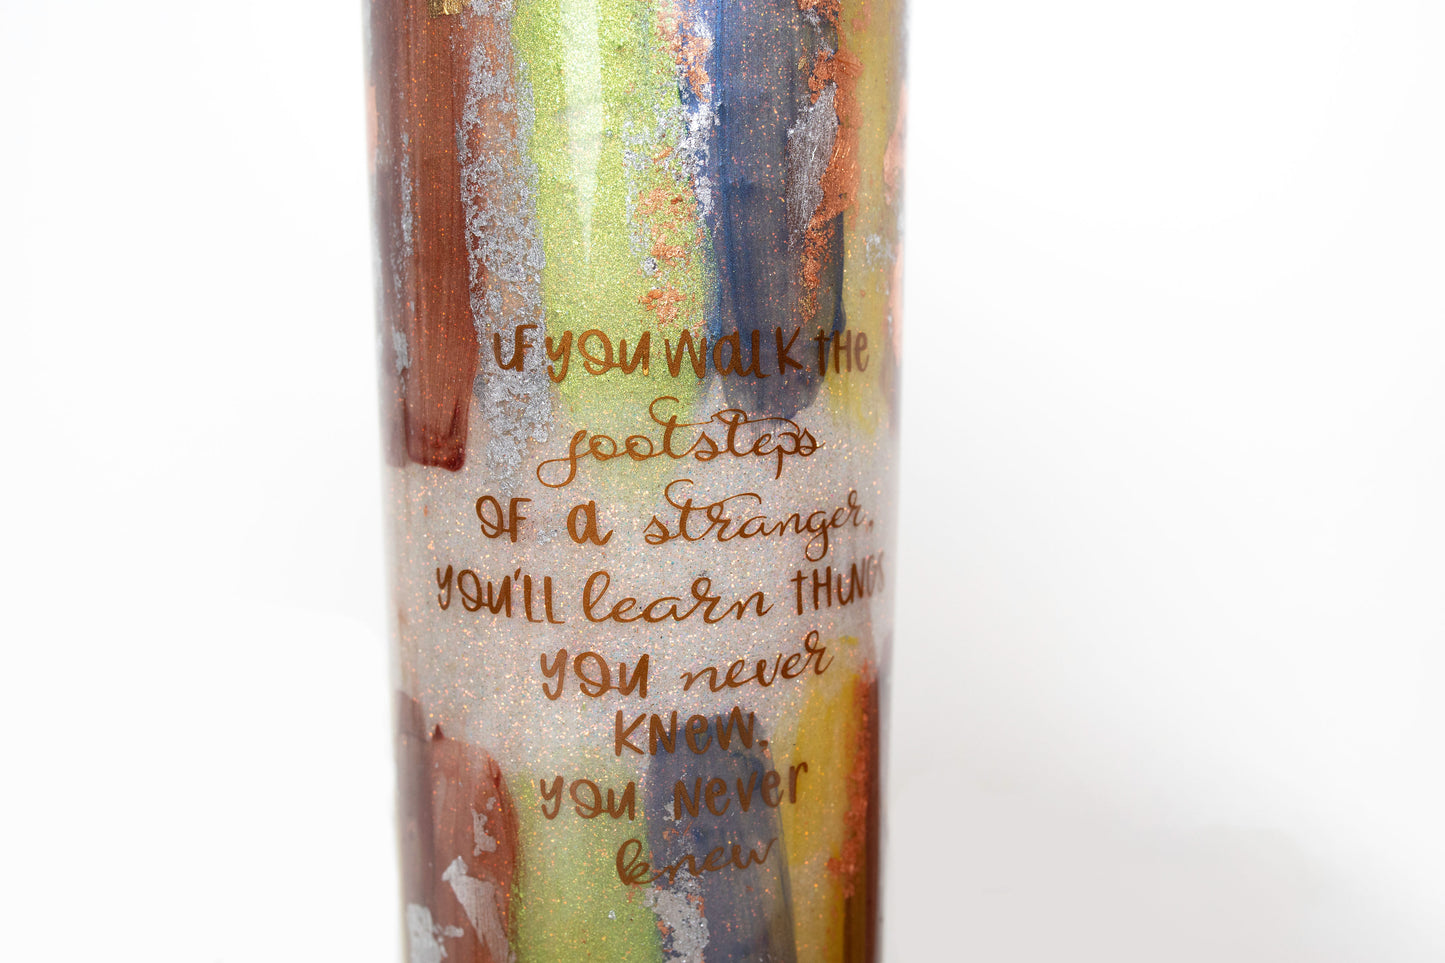 IF YOU WALK THE
footsteps
OF a stranger,
YOU'LL learn THINGS
YOU never
KNEW,
YOU NEVER
knew